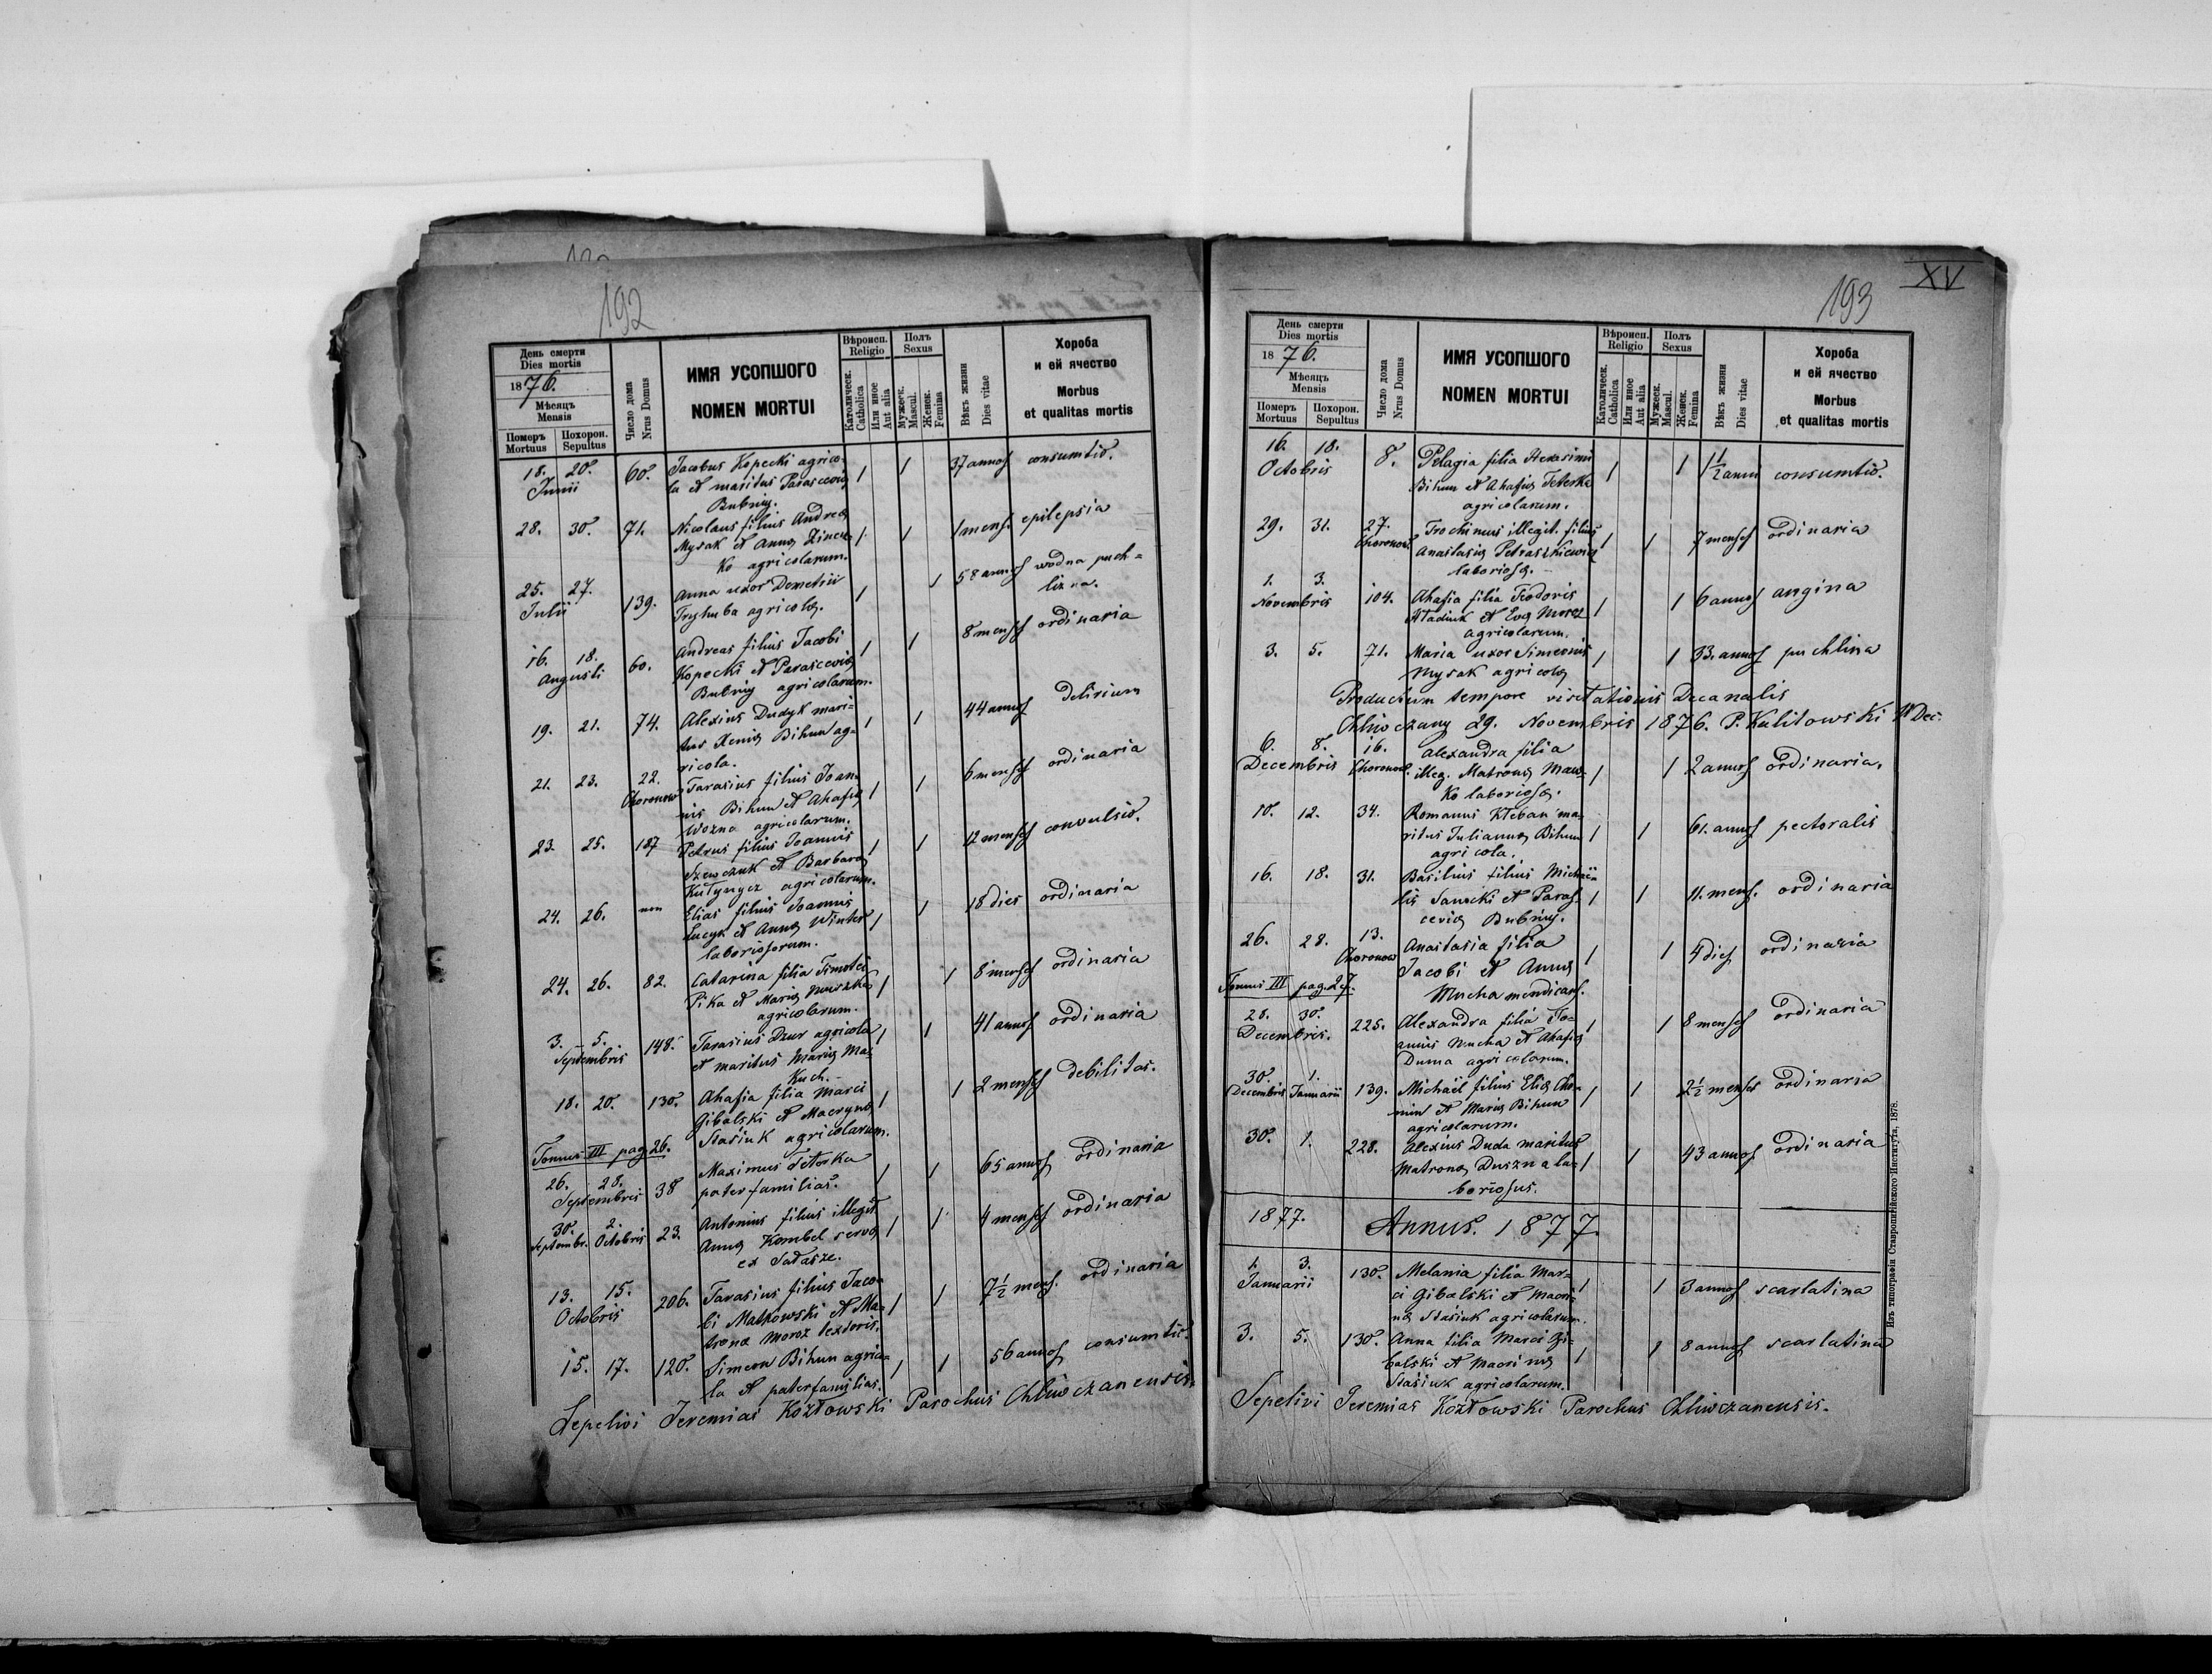 192
День смерти
Dies mortis
1876.
Мѣсяцъ
Mensis
Померъ
Mortuus
Похорон.
Sepultus
Число дома
Nrus Domus
ИМЯ УСОПШОГО
NOMEN MORTUI
Вѣроисп.
Religio
Католическ.
Catholica
Или иное
Aut alia
Полъ
Sexus
Мужеск.
Mascul.
Женск.
Femina
Вѣкъ жизни
Dies vitae
Хороба
и ей ячество
Morbus
et qualitas mortis
18. 20. 60. Jacobus Kopecki agrico- 1 1 37 annos consumtio.
Junii la et maritus Parascevię
Bubniy.
28. 30. 71. Nicolaus filius Andreę 1 1 1 mens. epilepsia
Mysak et Annę Zincu
ko agricolarum.
25. 27. 139. Anna uxor Demetrii 1 1 58 annos wodna puch-
Julii Tryhuba agricolę. lizna.
16. 18. 60. Andreas filius Jacobi 1 1 8 menses ordinaria
Augusti Kopecki et Parascevię
Bubniy agricolarum.
19. 21. 74. Alexius Dudyk mari- 1 1 44 annos delirium
tus Xenię Bihun ag-
ricola.
21. 23. 22. Tarasius filius Joan- 1 1 6 menses ordinaria
Choronow nis Bihun et Ahafię
Wozna agricolarum.
23. 25. 187 Petrus filius Joannis 1 1 12 menses convulsio.
Szewczuk et Barbarę
Kułynycz agricolarum.
24. 26. Elias filius Joannis 1 1 18 dies ordinaria
Lucyk et Annę Winter
laboriosorum.
24. 26. 82. Catarina filia Timotei 1 1 8 menses ordinaria
Pika et Marię Muszka
agricolarum.
3. 5. 148. Tarasius Dzur agricola 1 1 41 annos ordinaria
Septembris et maritus Marię Ma-
kuch.
18. 20. 130. Ahafia filia Marci 1 1 2 menses debilitas.
Gibalski et Macrynę
Stasiuk agricolarum.
Tomus III pag. 26.
26. 28. 38 Maximus Teterka 1 1 65 annos ordinaria
Septembris paterfamilias.
30. 2. 23. Antonius filius illegit. 1 1 4 menses ordinaria
Septembr. Octobris Annę Kombel servę
ex Sałasze.
13. 15. 206. Tarasius filius Jaco- 1 1 7½ mens. ordinaria
Octobris bi Małkowski et Ma-
tronę Moroz textoris.
15. 17. 120. Simeon Bihun agrico- 1 1 56 annos consumtio.
la et paterfamilias.
Sepelivi Jeremias Kozłowski Parochus Chliwczanensis.
193
XV
День смерти
Dies mortis
1876.
Мѣсяцъ
Mensis
Померъ
Mortuus
Похорон.
Sepultus
Число дома
Nrus Domus
ИМЯ УСОПШОГО
NOMEN MORTUI
Вѣроисп.
Religio
Католическ.
Catholica
Или иное
Aut alia
Полъ
Sexus
Мужеск.
Mascul.
Женск.
Femina
Вѣкъ жизни
Dies vitae
Хороба
и ей ячество
Morbus
et qualitas mortis
16. 18. 8. Pelagia filia Herasimi 1 1 1½ anni consumtio.
Octobris Bihun et Ahafię Teterka
agricolarum.
29. 31. 27. Trochimus illegit. filius 1 1 7 menses ordinaria
Choronow. Anastasię Petraszkiewicz
laboriosę.
1. 3. 104. Ahafia filia Teodoris 1 1 6 annos angina
Novembris Hładiuk et Evę Moroz
agricolarum.
3. 5. 71. Maria uxor Simeonis 1 1 33. annos puchlina
Mysak agricolę
Productum tempore visitationis Decanalis
Chliwczany 29. Novembris 1876. P. Kulitowski VDec.
6. 8. 16. Alexandra filia 1 1 2 annos ordinaria.
Decembris Choronow. illeg. Matronę Maw-
ko laboriosę.
10. 12. 34. Romanus Kłeban ma- 1 1 61. annos pectoralis
ritus Juliannę Bihun
agricola.
16. 18. 31. Basilius filius Michaë- 1 1 11. mens. ordinaria
lis Sanocki et Paras-
cevię Bubniy.
26. 28. 13. Anastasia filia 1 1 4 dies ordinaria
Choronow Jacobi et Annę
Tomus III pag. 27. Mucha mendicans.
28. 30. 225. Alexandra filia Jo- 1 1 8 menses ordinaria
Decembris. annis Mucha et Ahafię
Duma agricolarum.
30. 1. 139. Michaël filius Elię Cho- 1 1 2½ menses ordinaria
Decembris Januarii min et Marię Bihun
agricolarum.
30. 1. 228. Alexius Duda maritus 1 1 43 annos ordinaria
Matronę Duszna la-
boriosus.
1877. Annus. 1877.
1. 3. 130. Melania filia Mar- 1 1 3 annos scarlatina
Januarii ci Gibalski et Macri-
nę Stasiuk agricolarum.
3. 5. 130. Anna filia Marci Gi- 1 1 8 annos scarlatina
balski et Macrinę
Stasiuk agricolarum.
Sepelivi Jeremias Kozłowski Parochus Chliwczanensis.
Изъ типографіи Ставропигійского Института, 1878.